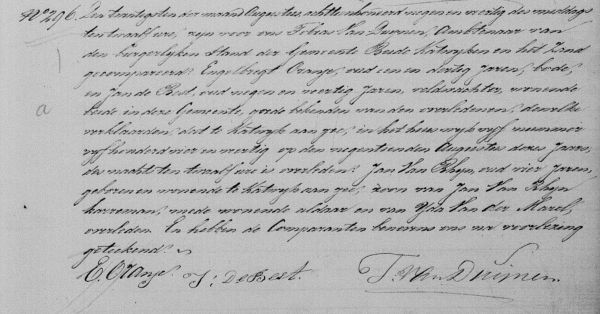 No 296. Den twintigsten der maand Augustus, achttienhonderd negen en veertig des middags
ten twaalf ure, zijn voor ons Tobias Van Duinen, Ambtenaar van
den burgerlijken Stand der Gemeente Beide Katwijken en het Zand
gecompareerd: Engelbregt Oranje, oud een en dertig Jaren, bode,
en Jan de Best, oud negen en veertig Jaren, veldwachter, wonende
beide in deze Gemeente, goede bekenden van den overledenen, dewelke
a
verklaarden, dat te Katwijk aan zee, in het huis wijk vyf nummer
vyfhonderd vier en veertig op den negentienden Augustus dezes Jaars,
des nachts ten twaalf ure is overleden: Jan Van Rhyn, oud vier Jaren,
geboren en wonende te Katwijk aan zee, zoon van Jan Van Rhyn
karreman, mede wonende aldaar en van Van der Marel,
overleden. En hebben de Comparanten benevens ons na voorlezing
geteekend.
E. Oranje. J: De Best. T. Van Duinen.